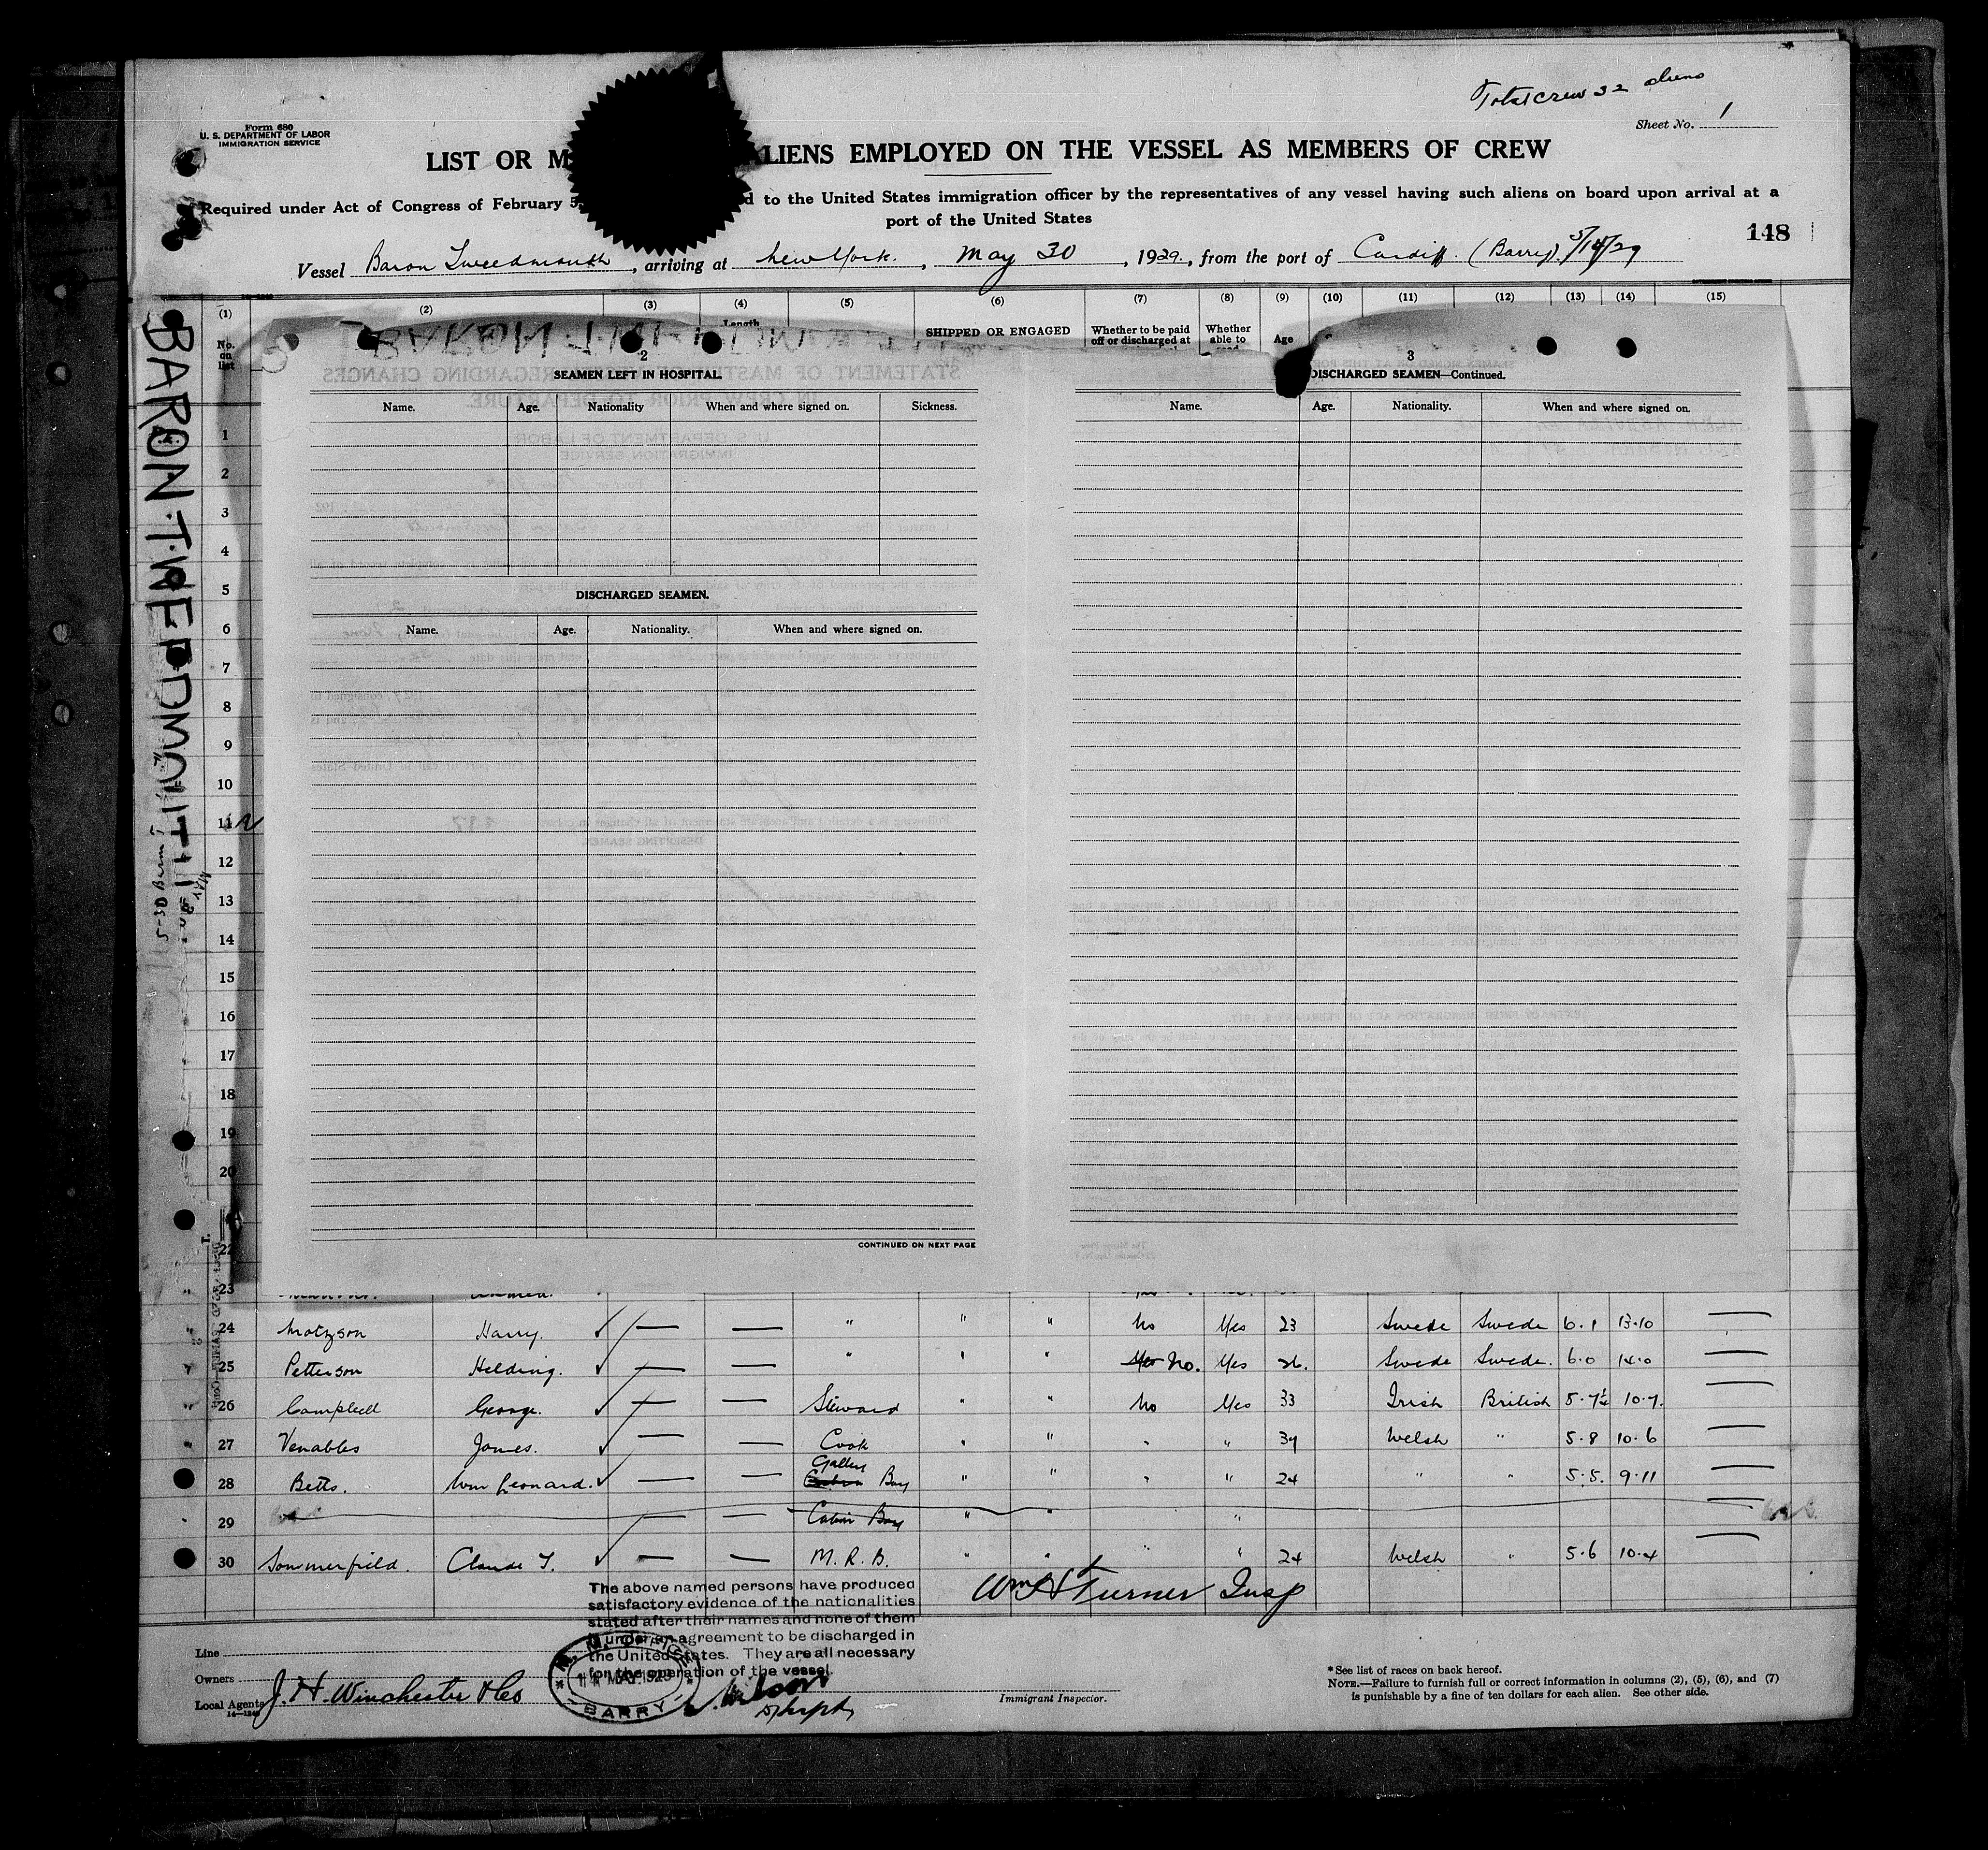 Total crew 32 aliens
Form 680
U. S. DEPARTMENT OF LABOR
IMMIGRATION SERVICE
Sheet No. 1
LIST OR M ALIENS EMPLOYED ON THE VESSEL AS MEMBERS OF CREW
Required under Act of Congress of February 5, d to the United States immigration officer by the representatives of any vessel having such aliens on board upon arrival at a
port of the United States
148
Vessel Baron Tweedmouth, arriving at New York., May 30, 1929, from the port of Cardiff. (Barry). 5/14/29
(1) (2) (3) (4) (5) (6) (7) (8) (9) (10) (11) (12) (13) (14) (15)
No. on list
Length
SHIPPED OR ENGAGED
Whether to be paid off or discharged at
Whether able to
Age
BARON TWEEDMOUTH
MAY 30
5-30
2
SEAMEN LEFT IN HOSPITAL.
Name. Age. Nationality When and where signed on. Sickness.
DISCHARGED SEAMEN.
Name. Age. Nationality. When and where signed on.
CONTINUED ON NEXT PAGE
3
DISCHARGED SEAMEN—Continued.
Name. Age. Nationality. When and where signed on.
1
2
3
4
5
6
7
8
9
10
11
12
13
14
15
16
17
18
19
20
22
23
24 Harry. " " " No Yes 23 Swede Swede 6.1 13.10
25 Petterson Helding. " " " Yes No. Yes 26. Swede Swede. 6.0 14.0
26 Campbell George. Steward " " No Yes 33 Irish British 5.7½ 10.7.
27 Venables James. Cook " " " " 39 Welsh " 5.8 10.6
28 Betts. Wm Leonard. Galley Cabin Boy " " " " 24 " " 5.5. 9.11
29 Cabin Boy " " "
30 Sommerfield. Claude T. M. R. B. " " " " 24 Welsh " 5.6 10.4
The above named persons have produced
satisfactory evidence of the nationalities
stated after their names and none of them
is under an agreement to be discharged in
the United States. They are all necessary
for the operation of the vessel.
Wm H Turner Insp
M. M. OFFICE
14 MAY 1929
BARRY
Line
Owners
Local Agents J. H. Winchester & Co
14—1240
Immigrant Inspector.
* See list of races on back hereof.
NOTE.—Failure to furnish full or correct information in columns (2), (5), (6), and (7)
is punishable by a fine of ten dollars for each alien. See other side.